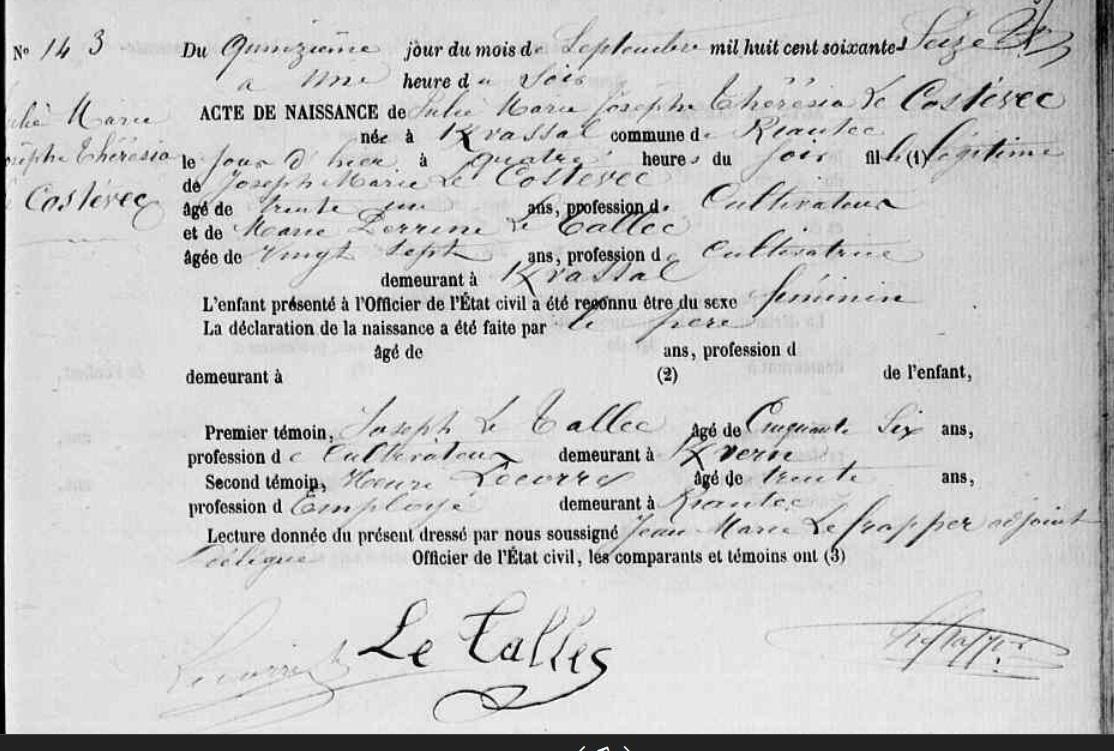 N° 143
Du Quinzieme jour du mois de Septembre mil huit cent soixante Seize
a une heure du Soir
ACTE DE NAISSANCE de Julie Marie Josephe Thérésia Le Costévec
née à Kvassal commune de Riantec
le jour d'hier à quatre heures du soir fille (1) légitime
de Joseph Marie Le Costevec
âgé de trente un ans, profession de Cultivateur
et de Marie Perrine Le Tallec
âgée de Vingt Sept ans, profession de Cultivatrice
demeurant à Kvassal
L'enfant présenté à l'Officier de l'État civil a été reconnu être du sexe féminin
La déclaration de la naissance a été faite par le père
âgé de ans, profession d
demeurant à (2) de l'enfant,
Premier témoin, Joseph Le Tallec âgé de Cinquante Six ans,
profession de Cultivateur demeurant à Kvern
Second témoin, Henri Lecorre âgé de trente ans,
profession d Employé demeurant à Riantec
Lecture donnée du présent dressé par nous soussigné Jean Marie Le frapper adjoint
délégué Officier de l'État civil, les comparants et témoins ont (3)
Julie Marie
Josephe Thérésia
Le Costévec
Lecorre
Le Tallec
Le frapper